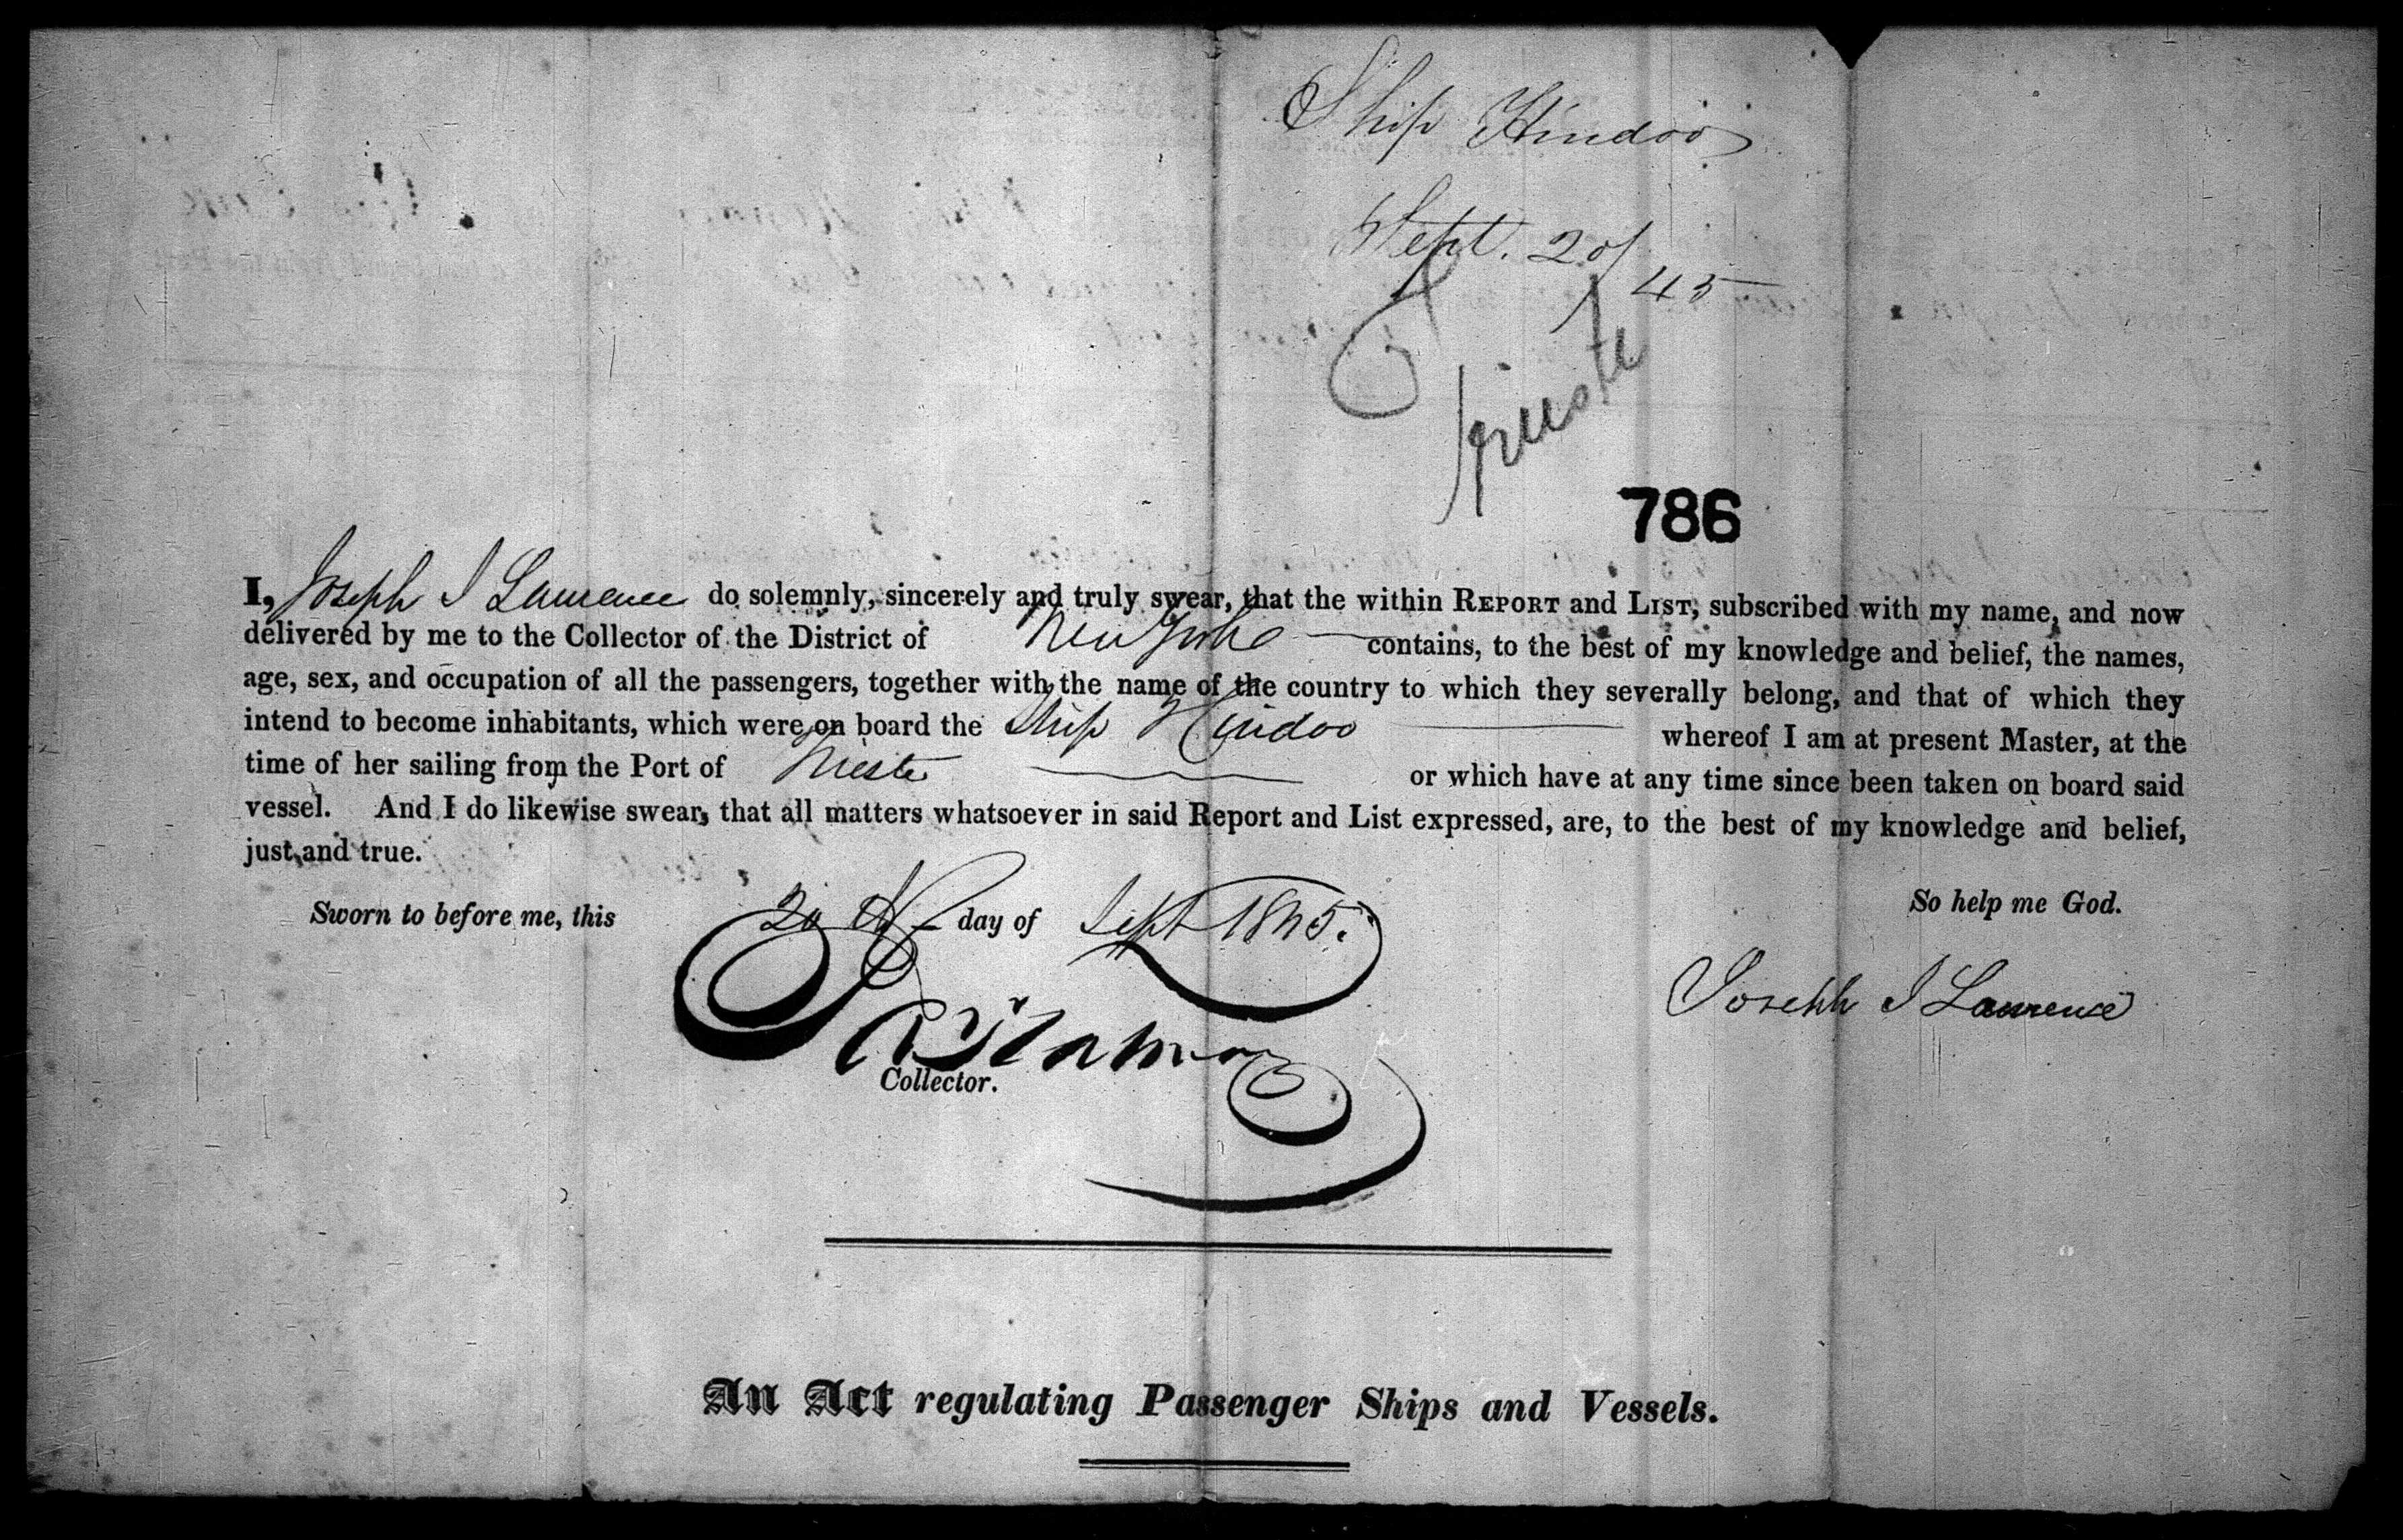 Ship Hindoo
Sept. 20/45
Trieste
786
I, Joseph I Laurence do solemnly, sincerely and truly swear, that the within REPORT and LIST, subscribed with my name, and now
delivered by me to the Collector of the District of New York contains, to the best of my knowledge and belief, the names,
age, sex, and occupation of all the passengers, together with the name of the country to which they severally belong, and that of which they
intend to become inhabitants, which were on board the Ship Hindoo whereof I am at present Master, at the
time of her sailing from the Port of Trieste or which have at any time since been taken on board said
vessel. And I do likewise swear, that all matters whatsoever in said Report and List expressed, are, to the best of my knowledge and belief,
just and true.
So help me God.
Sworn to before me, this 20th day of Sept 1845.
Joseph I Laurence
Collector.
An Act regulating Passenger Ships and Vessels.